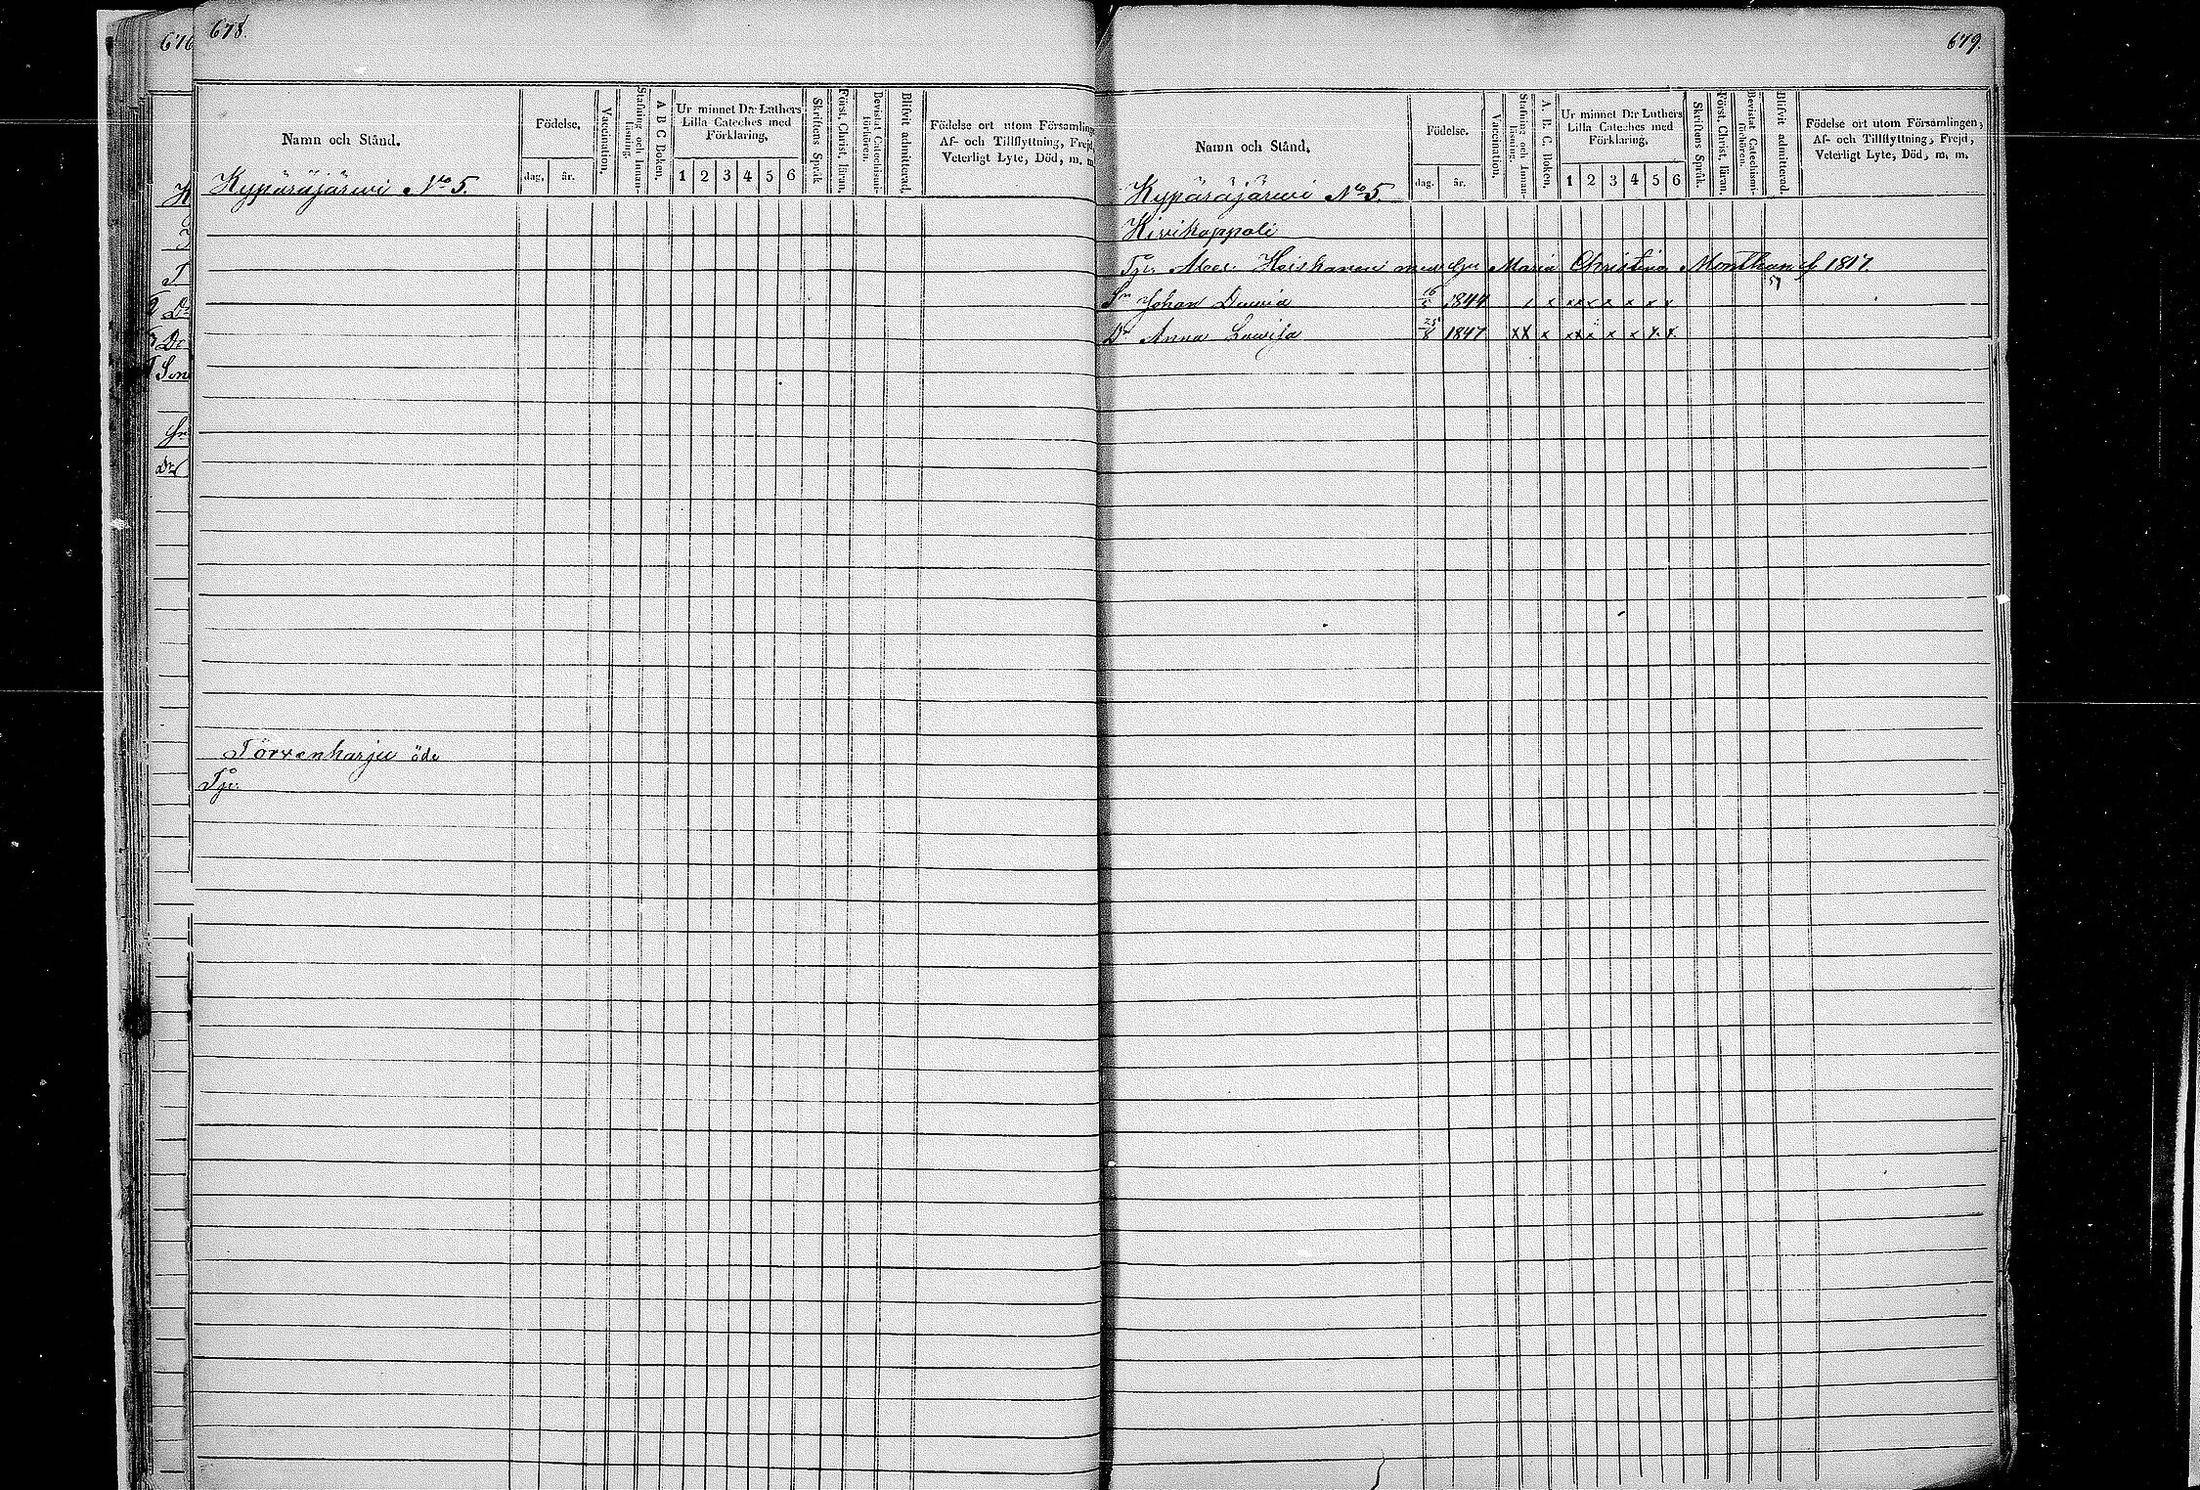 676
678.
Namn och Stånd.
Födelse,
dag, år.
Vaccination,
Stafning och Innanläsning.
A B C Boken,
Ur minnet D:r Luthers
Lilla Cateches med
Förklaring,
1 2 3 4 5 6
Skriftens Språk
Först. Christ. läran,
Bevistat Catechismi-förhören.
Blifvit admitterad.
Födelse ort utom Församlingen
Af- och Tillflyttning, Frejd,
Veterligt Lyte, Död, m. m.
Kypäräjärwi No 5.
Törvenharju öde
Tp:
679.
Namn och Stånd,
Födelse.
dag. år.
Vaccination,
Stafning och Innanläsning.
A. B. C. Boken,
Ur minnet D:r Luthers
Lilla Cateches med
Förklaring,
1 2 3 4 5 6
Skriftens Språk.
Först. Christ. läran,
Bevistat Catechismi-förhören.
Blifvit admitterad.
Födelse ort utom Församlingen,
Af- och Tillflyttning, Frejd,
Veterligt Lyte, Död, m. m.
Kypäräjärwi No 5.
Kivikoppoli
Heiskanen Maria Christina f 1817.
Sn Johan 1844
Dr Anna Lowisa 25/8 1847 xx x xx x x x x x